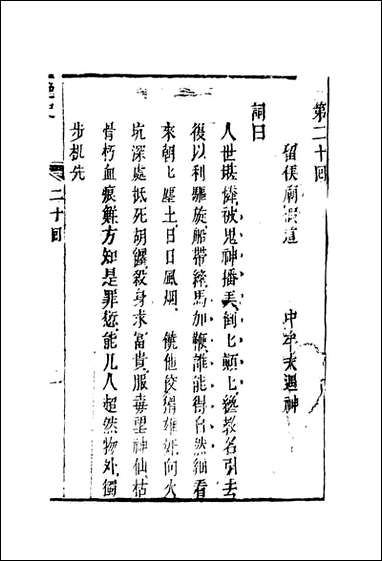 第二十回
留侯廟假道　中牟夫遇神
詞曰
人世堪憐被鬼神播弄倒匕顛匕纔教名引去
後以利驅旋船帶縴馬加鞭誰能得自然細看
來朝匕塵土日日風烟　饒他狡猾雄奸向火
坑深處抵死胡纏殺身求富貴服毒望神仙枯
骨朽血痕鮮方知是罪愆能几人超然物外獨
步机先
二十回
一